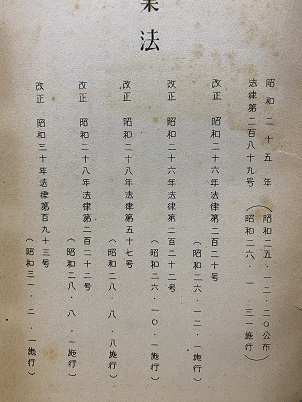 業法
昭和二十五年（昭和二五・一二・二〇公布
法律第二百八十九号（昭和二六・一・三一施行）
改正 昭和二十六年法律第二百二十号
（昭和二六・一二・一施行）
改正 昭和二十六年法律第二百二十二号
（昭和二六・一〇・一施行）
改正 昭和二十八年法律第五十七号
（昭和二八・八・八施行）
改正 昭和二十八年法律第二百二十二号
（昭和二八・八・一施行）
改正 昭和三十年法律第百九十三号
（昭和三一・二・一施行）